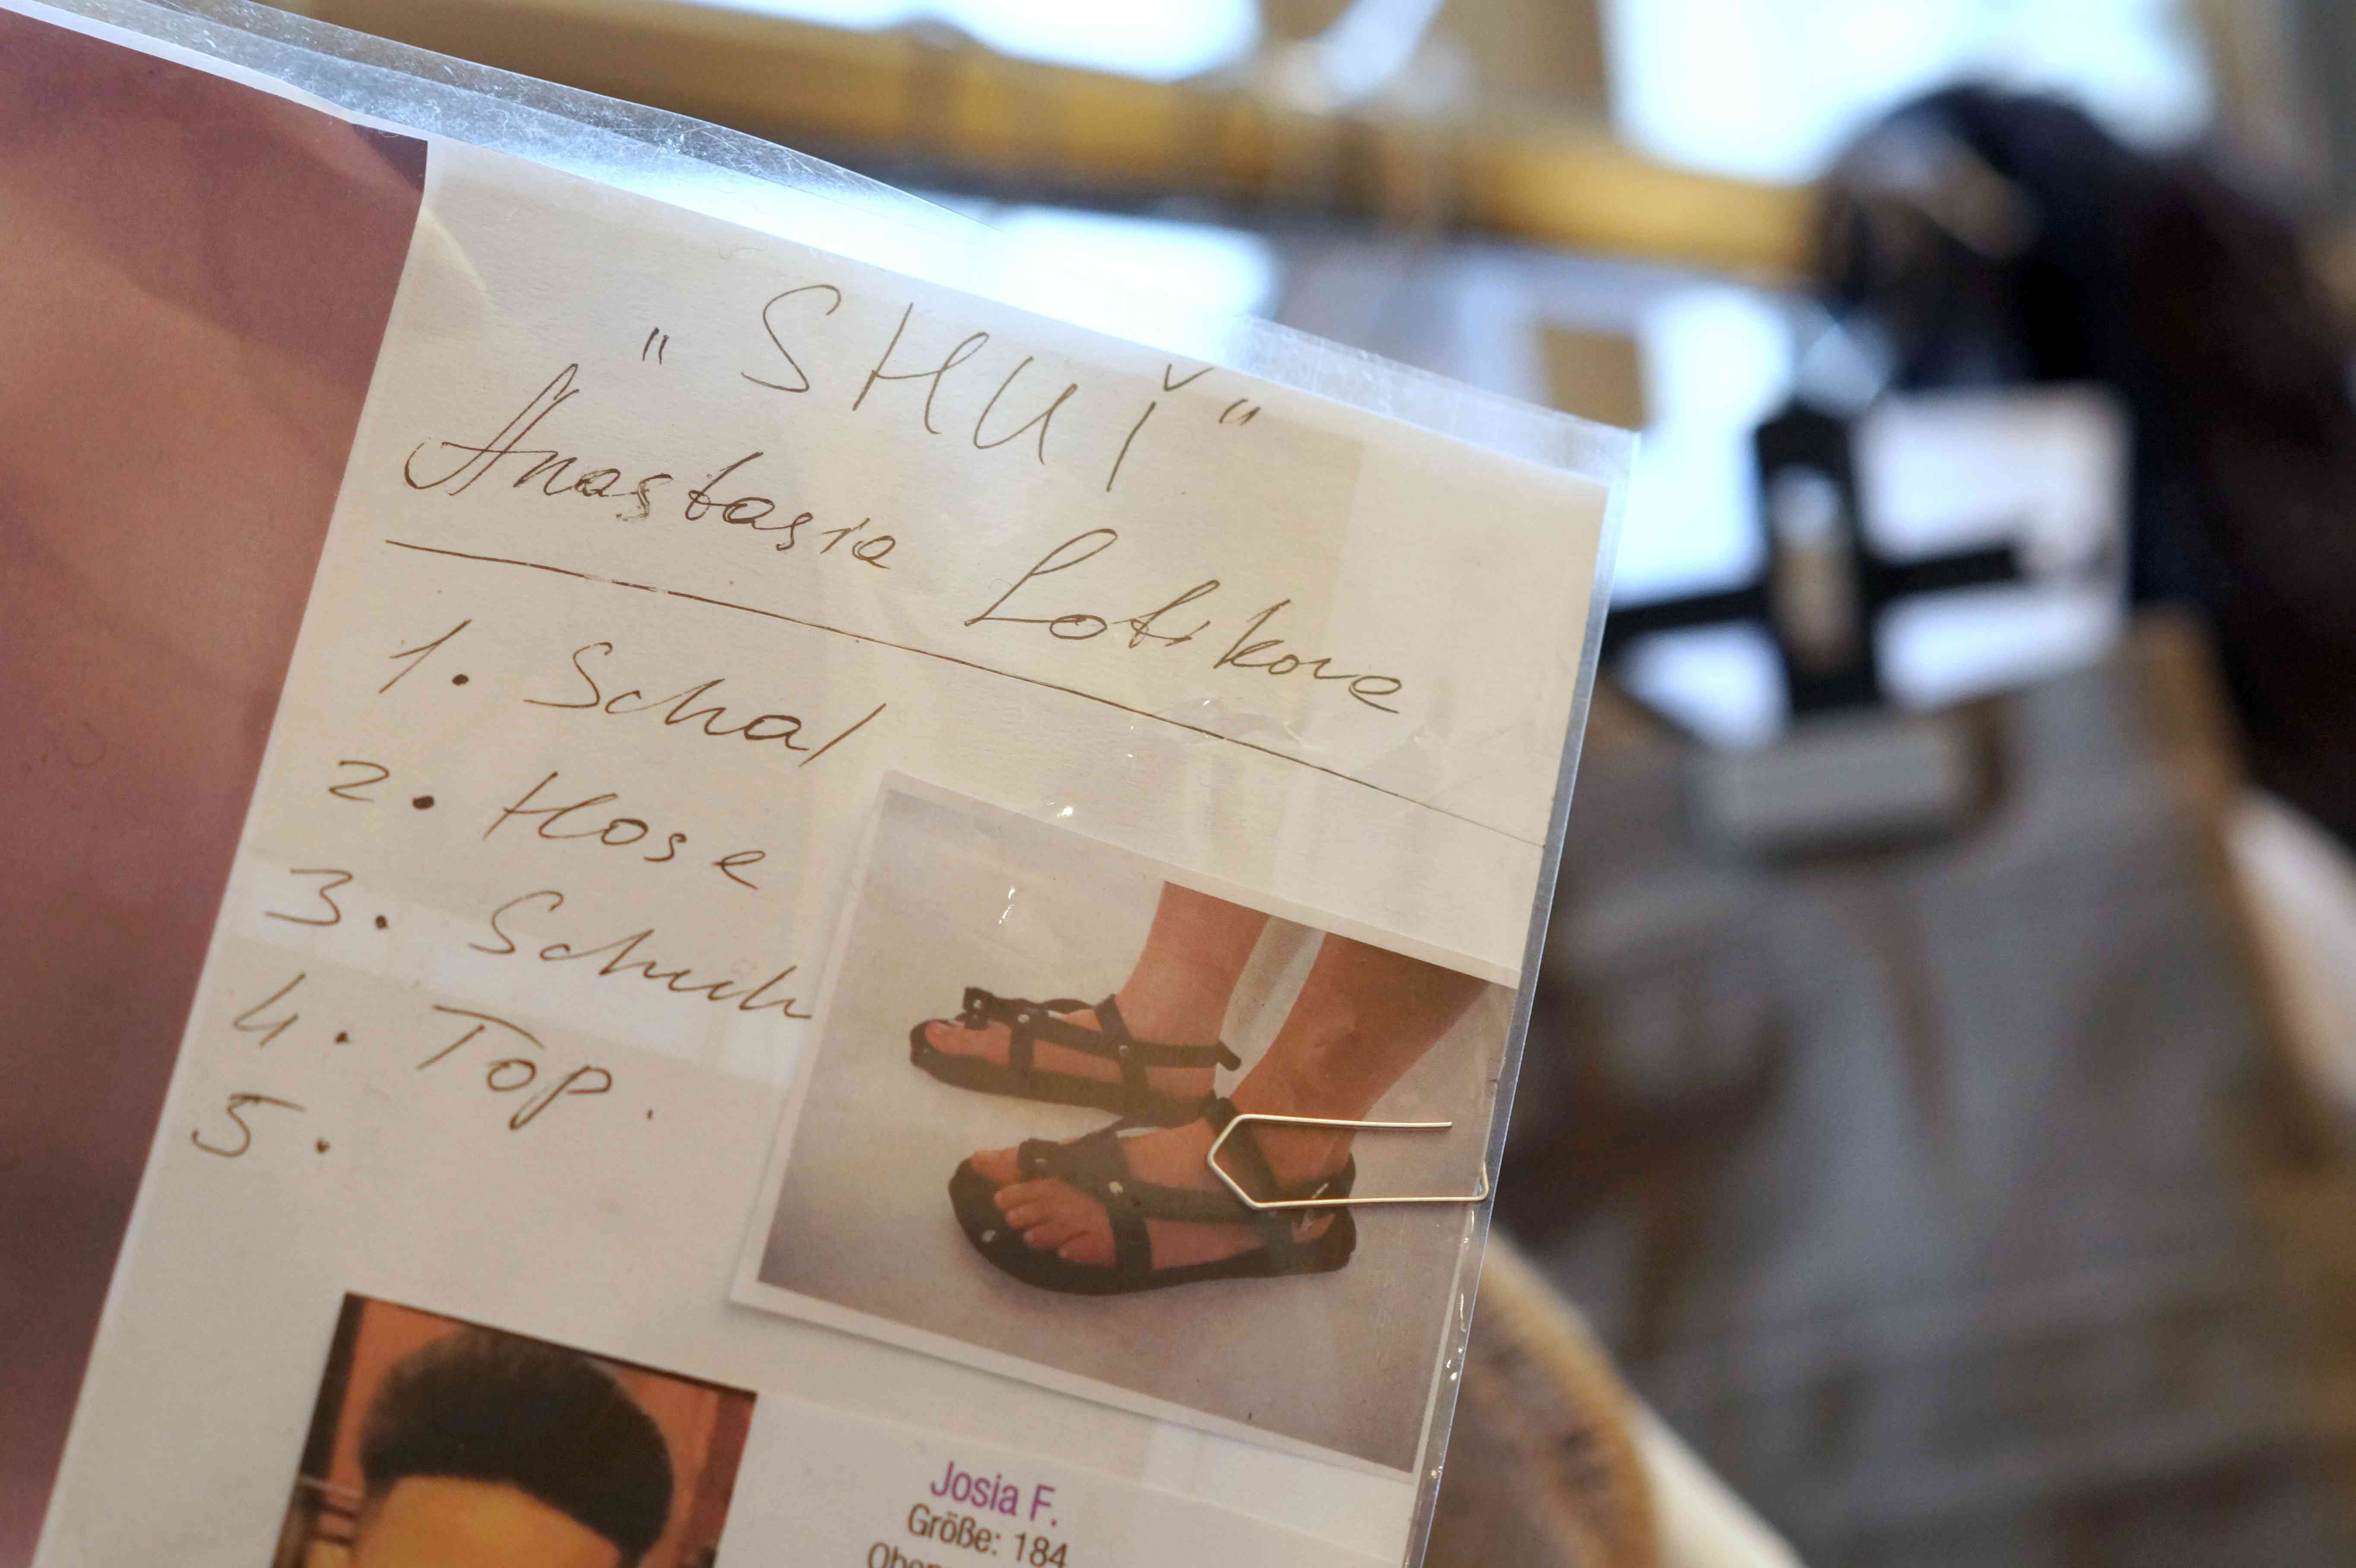 "SHUǏ"
Anastasia Lotikova
1. Schal
2. Hose
3. Schuh
4. Top.
5.
Josia F.
Größe: 184